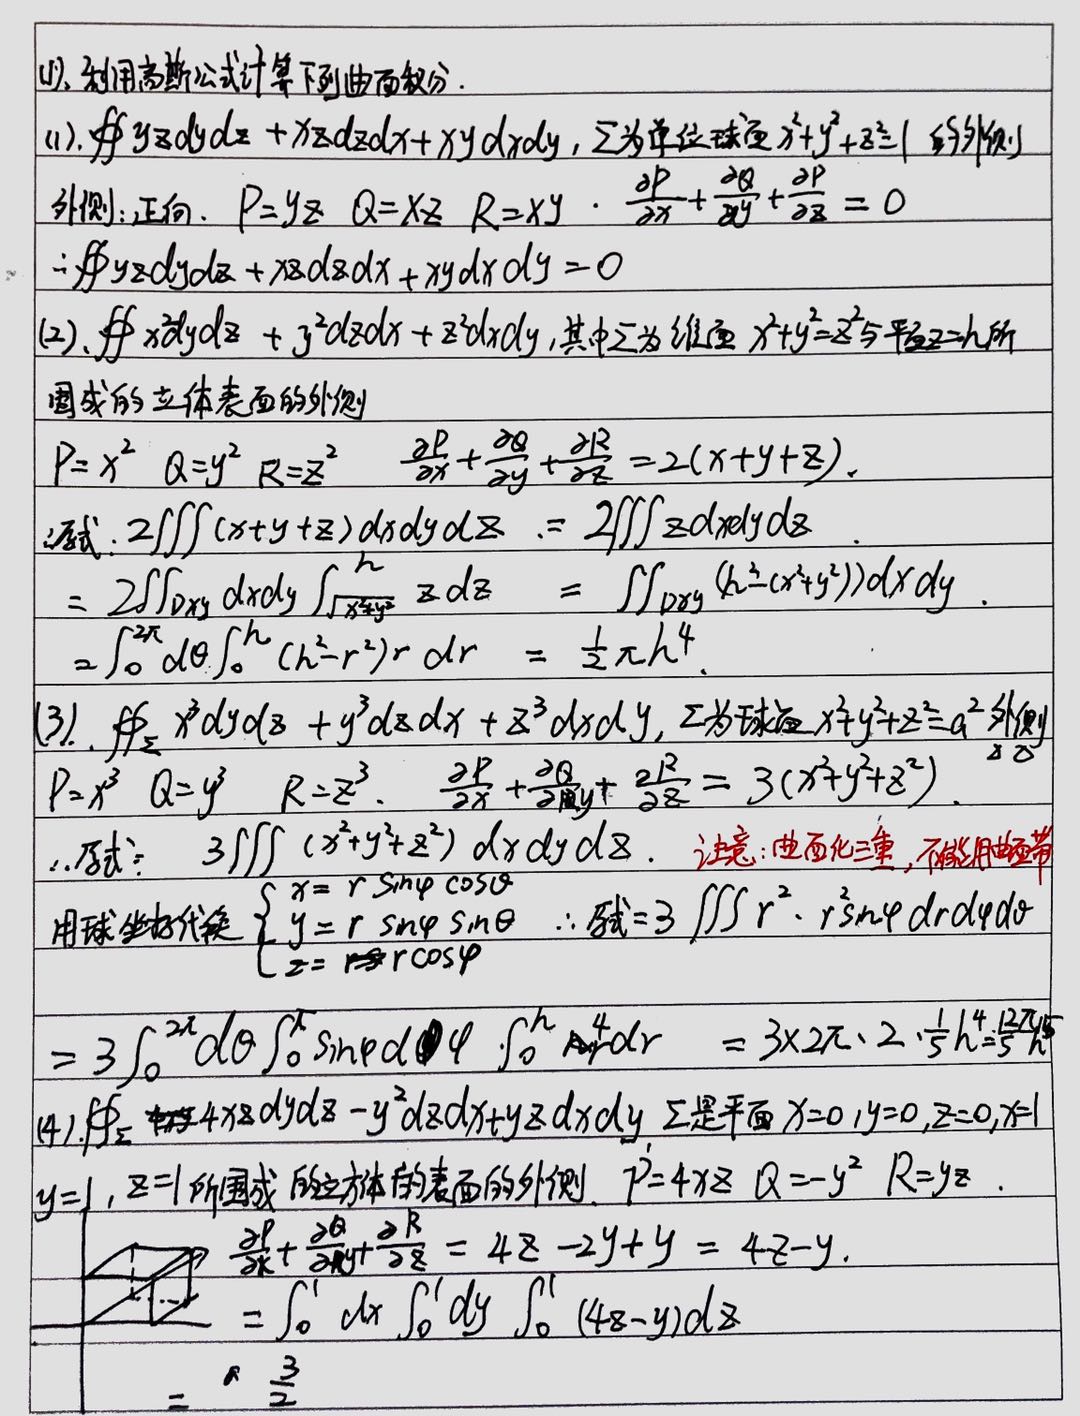 (1)、利用高斯公式计算下列曲面积分.
(1). ∯ yzdydz + xzdzdx + xydxdy, Σ为单位球面 x²+y²+z²=1 的外侧
外侧:正向. P=yz Q=xz R=xy . ∂P/∂x + ∂Q/∂y + ∂P/∂z = 0
∴∯ yzdydz + xzdzdx + xydxdy = 0
(2)、∯ x²dydz + y²dzdx + z²dxdy, 其中Σ为锥面 x²+y²=z²与平面z=h所
围成的立体表面的外侧
P=x² Q=y² R=z² ∂P/∂x + ∂Q/∂y + ∂R/∂z = 2(x+y+z).
∴原式: 2∭(x+y+z)dxdydz .= 2∭zdxdydz .
= 2∬Dxy dxdy ∫√(x²+y²)^h z dz = ∬Dxy (h²-(x²+y²))dxdy .
= ∫₀^2π dθ ∫₀^h (h²-r²)r dr = 1/2 πh⁴.
(3). ∯Σ x³dydz + y³dzdx + z³dxdy, Σ为球面 x²+y²+z²=a² 外侧
P=x³ Q=y³ R=z³. ∂P/∂x + ∂Q/∂y + ∂R/∂z = 3(x²+y²+z²).
∴原式: 3∭(x²+y²+z²)dxdydz. 注意:曲面化三重,不能用曲面带
用球坐标代换 { x = r sinφ cosθ
y = r sinφ sinθ ∴原式=3∭r²·r²sinφ drdφdθ
z = rcosφ
= 3∫₀^2π dθ ∫₀^π sinφdφ ·∫₀^h r⁴dr = 3×2π·2·1/5 h⁴ = 12π/5 h⁵
(4). ∯Σ 4xzdydz - y²dzdx + yzdxdy Σ是平面 x=0, y=0, z=0, x=1
y=1, z=1所围成的立方体的表面的外侧. P=4xz Q=-y² R=yz .
∂P/∂x + ∂Q/∂y + ∂R/∂z = 4z-2y+y = 4z-y.
= ∫₀¹ dx ∫₀¹ dy ∫₀¹ (4z-y)dz
= 3/2